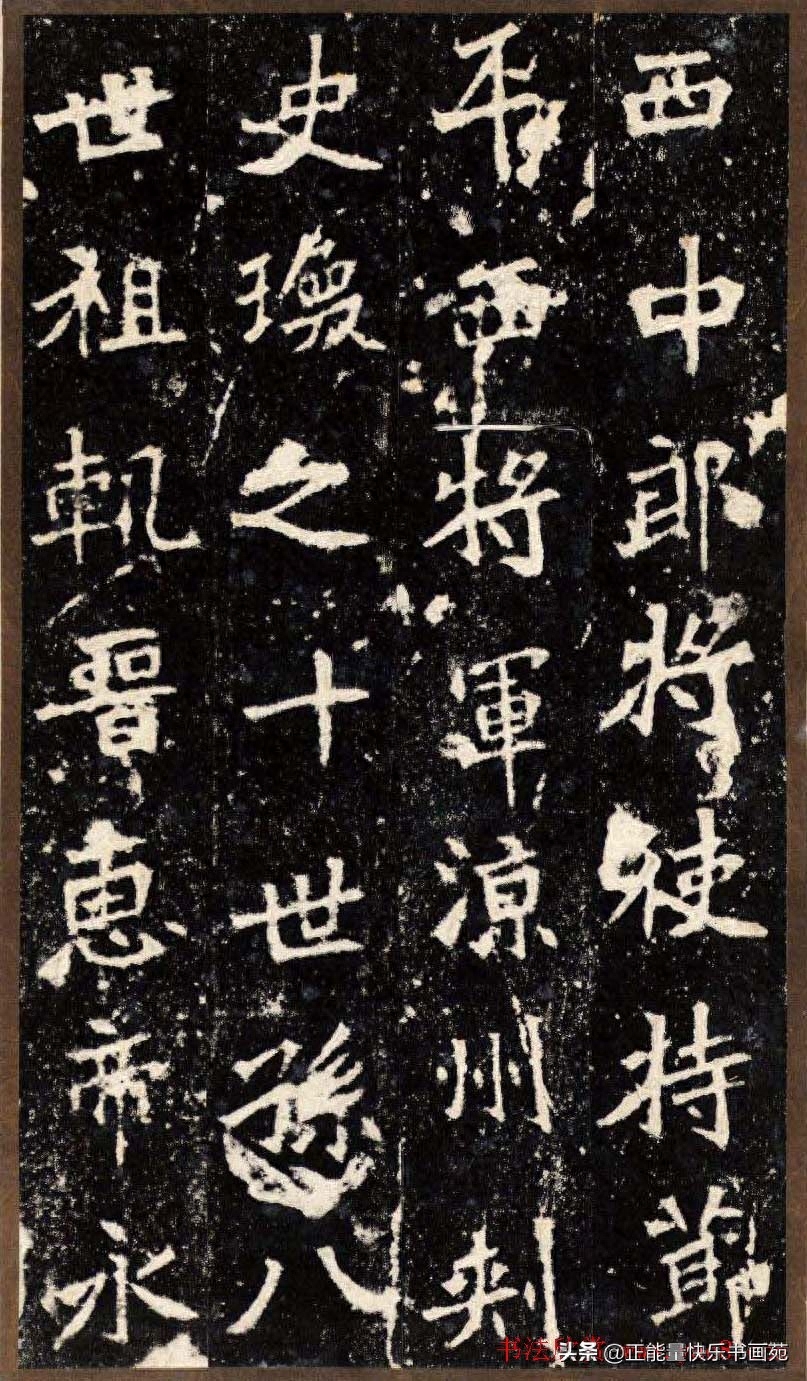 西中郎将使持節
平西将軍涼州刺
史瓊之十世孫八
世祖軌晉恵帝永
头条@正能量快乐书画苑